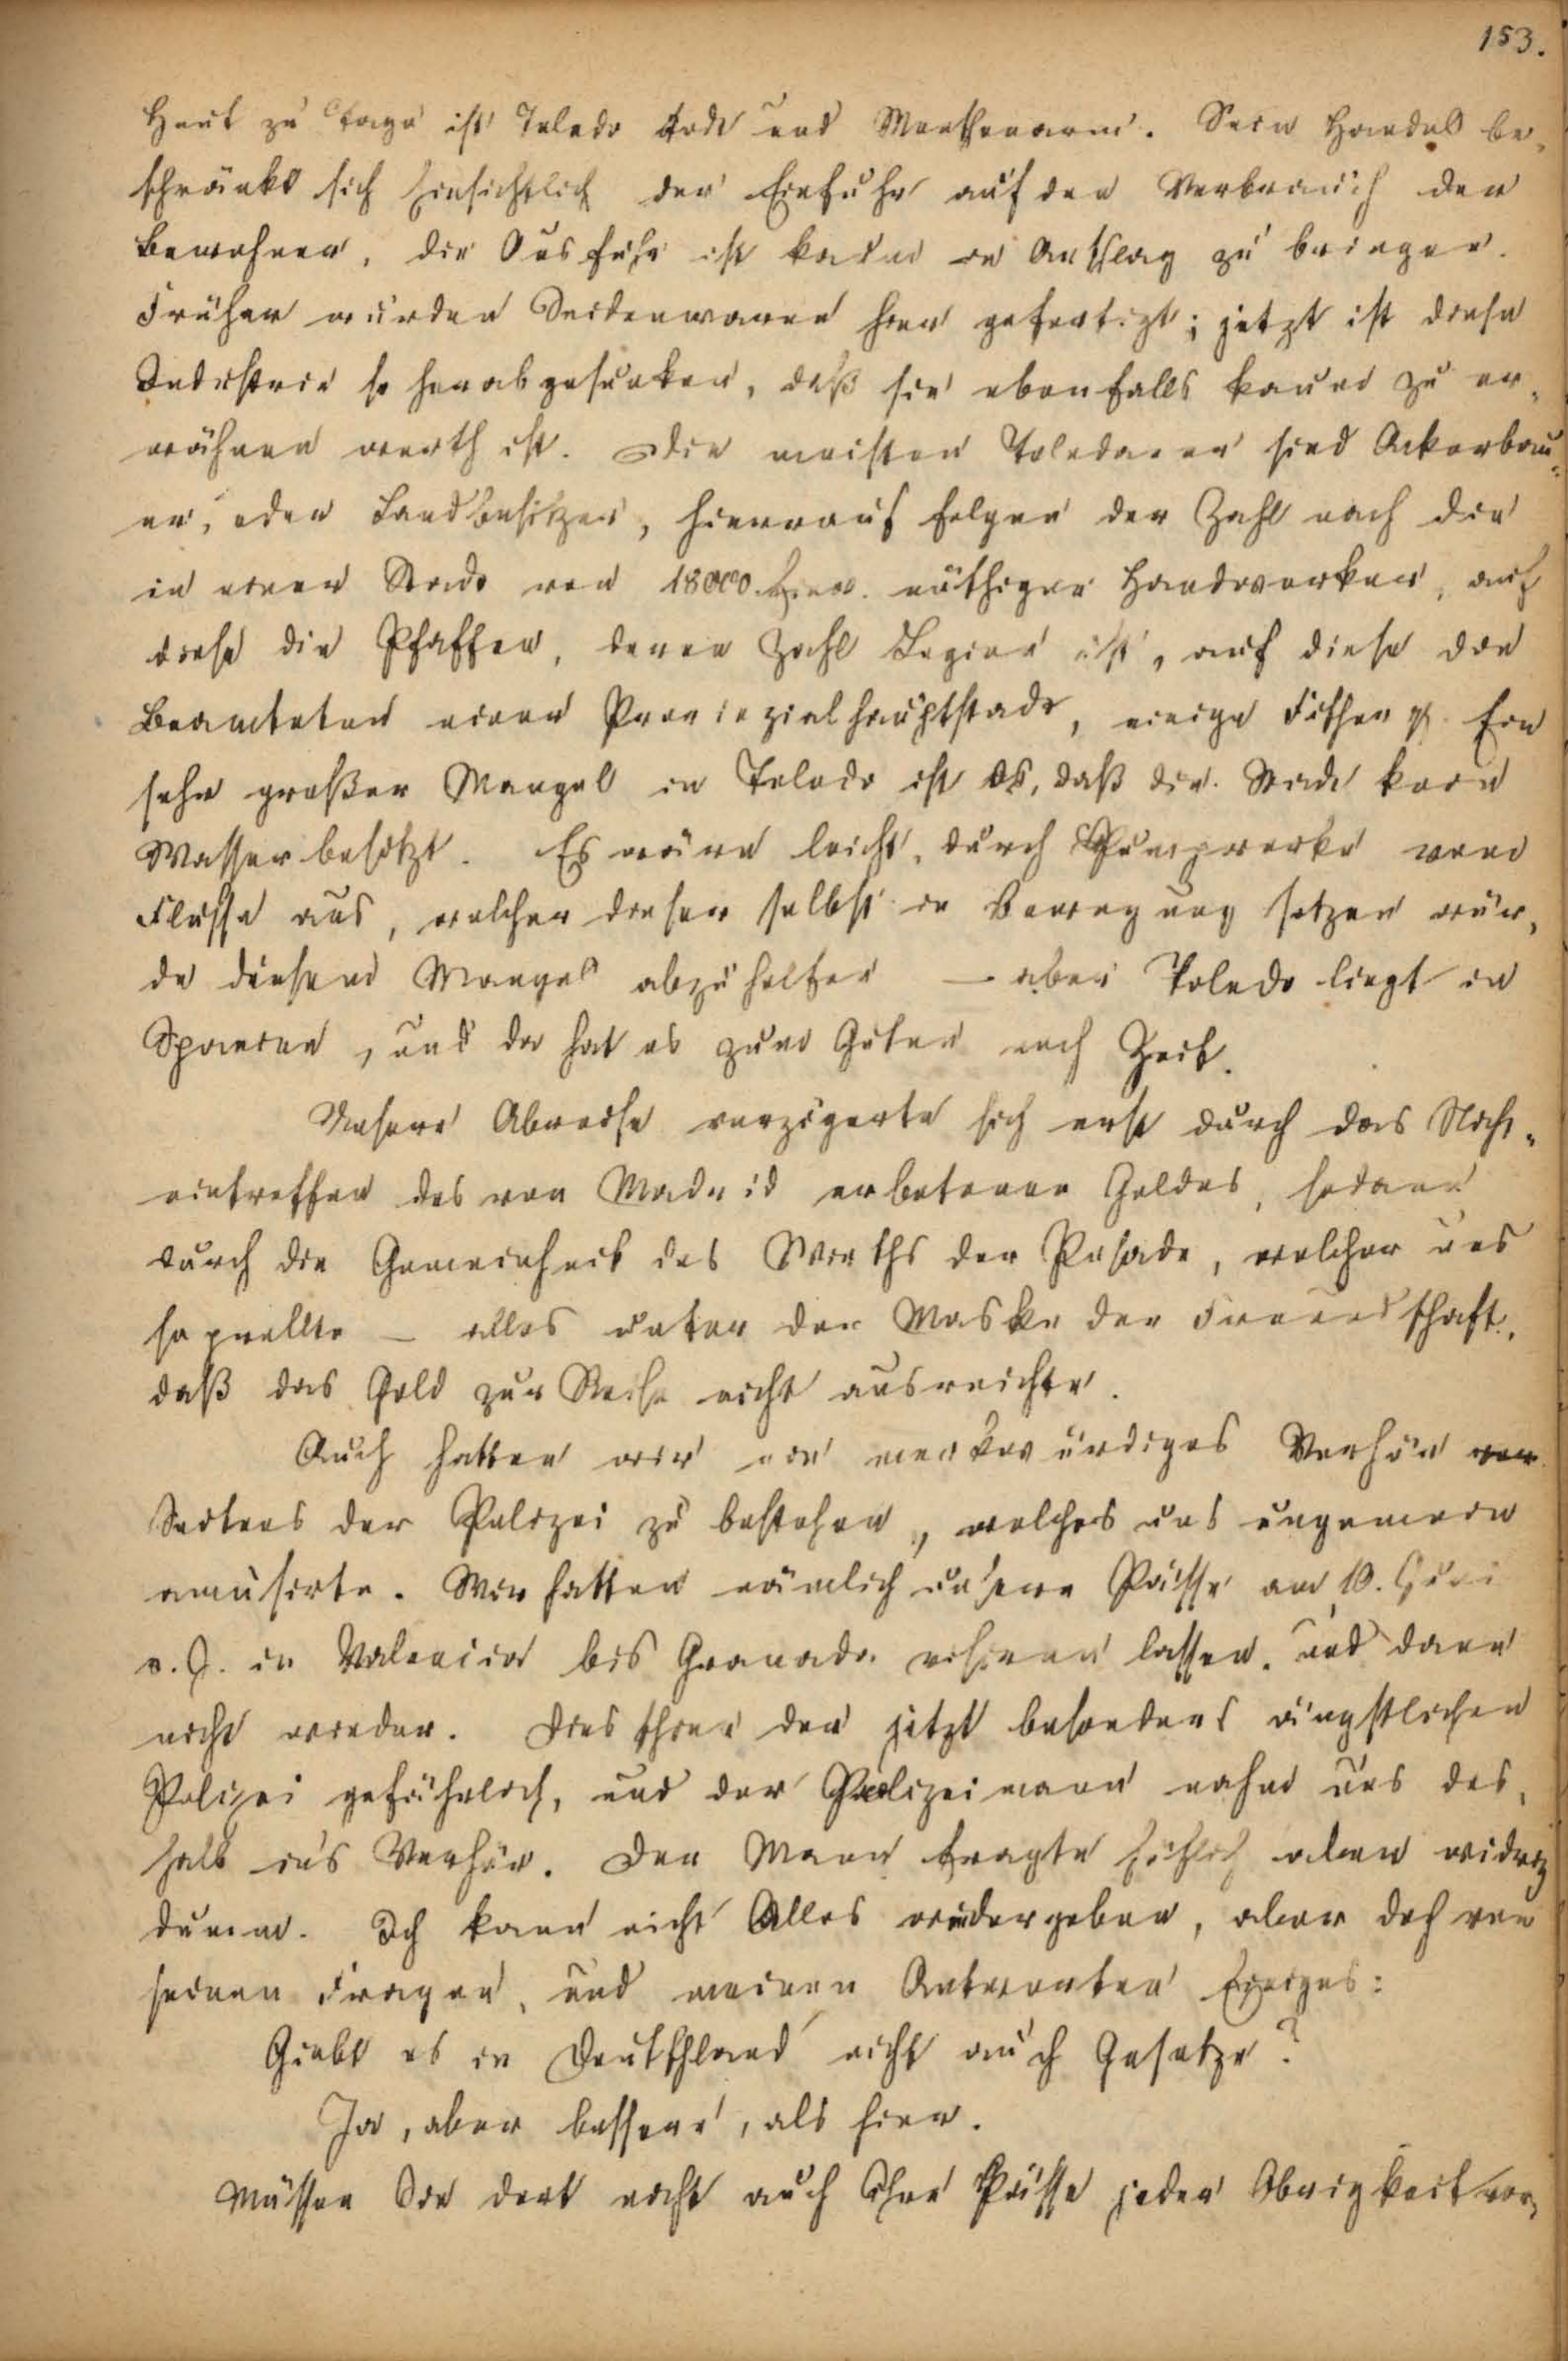 153.
Heut zu Tage ist Toledo todt und Menschenarm. Sein Handel be-
schränkt sich hinsichtlich der Einfuhr auf den Verbrauch der
Bewohner, die Ausfuhr ist kaum in Anschlag zu bringen.
Früher wurden Seidenwaren hier gefertigt; jetzt ist diese
Industrie so herabgesunken, daß sie ebenfalls kaum zu er-
wähnen werth ist. Die meisten Toledaner sind Ackerbau-
er, oder Landbesitzer, hierauf folgen der Zahl nach die
in einer Stadt von 18000 Einw. nöthigen Handwerker, auf
diese die Pfaffen, deren Zahl Legion ist, auf diese die
Beamteten einer Provinzialhauptstadt, einige Fischer pp. Ein
sehr großer Mangel in Toledo ist es, daß die Stadt kein
Wasser besitzt. Es wäre leicht, durch Pumpwerke vom
Flusse aus, welcher diese selbst in Bewegung setzen wür-
de diesem Mangel abzuhelfen — aber Toledo liegt in
Spanien, und da hat es zum Guten noch Zeit.
Unsere Abreise verzögerte sich erst durch das Nicht-
eintreffen des von Madrid erbetenen Geldes, sodann
durch die Gemeinheit des Wirths der Posada, welcher uns
so prellte — alles unter der Maske der Freundschaft,
daß das Geld zur Reise nicht ausreichte.
Auch hatten wir ein merkwürdiges Verhör von
Seiten der Polizei zu bestehen, welches uns ungemein
amüsirte. Wir hatten nämlich unsere Pässe am 10. Juni
v. J. in Valencia bis Granada visiren lassen, und dann
nicht wieder. Dies schien der jetzt besonders ängstlichen
Polizei gefährlich, und der Polizeimann nahm uns des-
halb in's Verhör. Der Mann fragte höflich aber niedrig
dumm. Ich kann nicht Alles wiedergeben, aber doch von
seinen Fragen, und meinen Antworten Einiges:
Giebt es in Deutschland nicht auch Gesetze?
Ja, aber bessere, als hier.
Müssen Sie dort nicht auch Ihre Pässe jeder Obrigkeit vor-